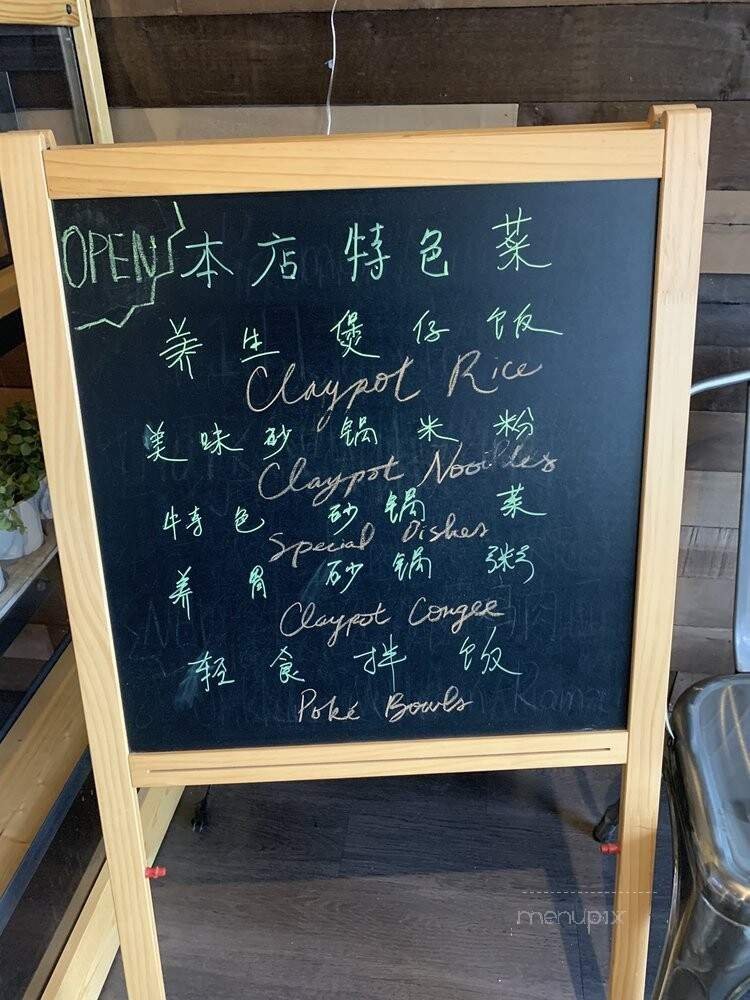 OPEN 本店特色菜
养生煲仔饭
Claypot Rice
美味砂锅米粉
Claypot Noodles
特色砂锅菜
Special Dishes
养胃砂锅粥
Claypot Congee
轻食拌饭
Poké Bowls
menupix